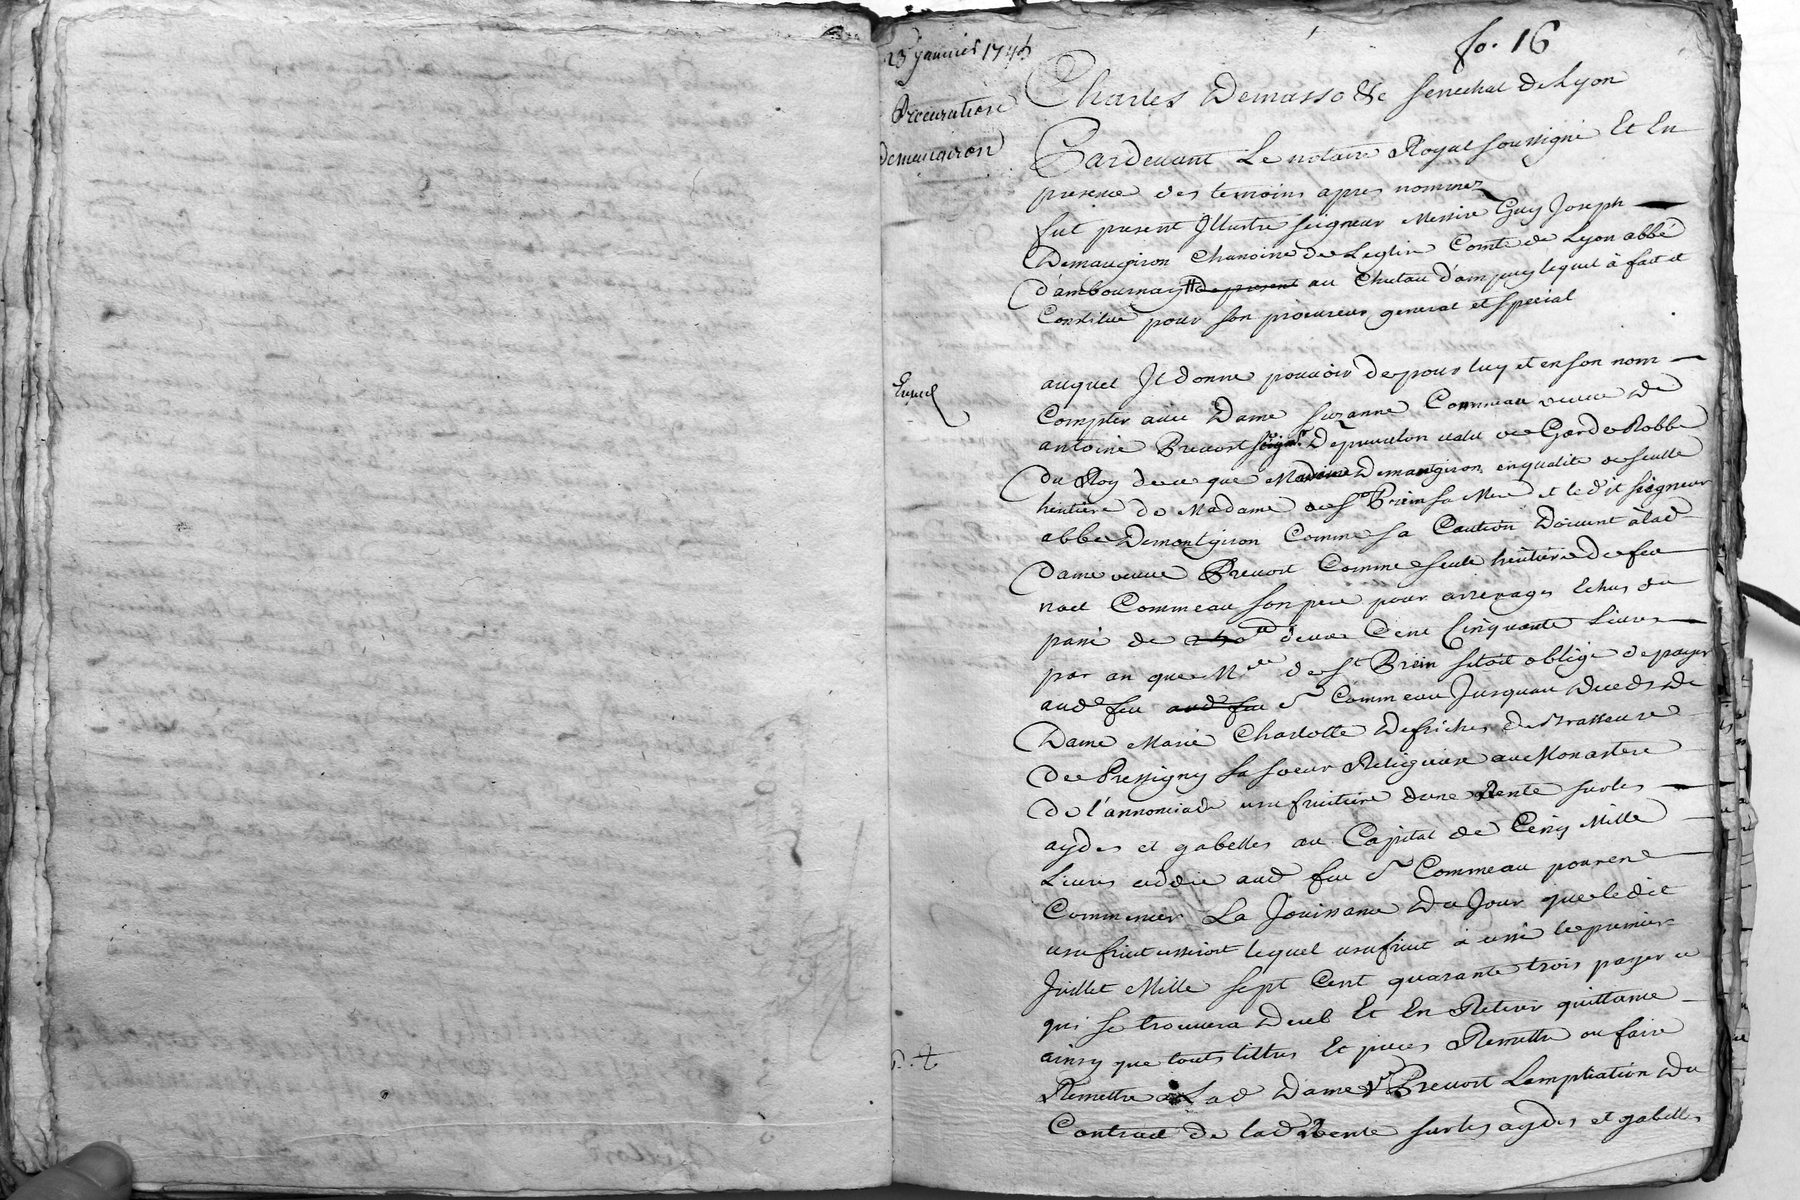 fo. 16
23 janvier 1745
Procuration
Demaugiron
Charles Demasso &c senechal de Lyon
Pardevant Le notaire Royal soussigné Et En
presence des temoins apres nommez
fut present Illustre seigneur Messire Guy Joseph
Demaugiron Chanoine de Leglise Comte de Lyon abbé
d'ambournay # de present au Chateau d'ampuy lequel à fait et
Constitué pour son procureur general et special
auquel Il donne pouvoir de pour luy et en son nom
Compter avec Dame Suzanne Commeau veuve de
antoine Brevost seigr. De valet de Garde Robbe
du Roy de ce que Madame Demaugiron en qualité de seulle
heritiere de Madame de St Brein sa Mere et le dit seigneur
abbé Demontgiron Comme sa Caution Doivent à lad
Dame veuve Brevost Comme seule heritiere de feu
noel Commeau son pere pour arrerages Echus du
de deux Cent Cinquante Livres
par an que Mde de St Brein setoit obligé de payer
aud feu aud feu Sr Commeau Jusquau deceds de
Dame Marie Charlotte Defriches de Brasseuse
de Pressigny sa soeur Religieuse au Monastere
de l'annonciade usufruitiere dune Rente sur les
aydes et gabelles au Capital de Cinq Mille
Livres cedée aud feu Sr Commeau pour en
Commencer La Jouissance du Jour que ledit
usufruit cesseroit lequel usufruit a cessé le premier
Juillet Mille sept Cent quarante trois payer ce
qui se trouvera deub Et En Retirer quittance
ainsy que touts tittres Et pieces Remettre ou faire
Remettre a Lad Dame Ve Brevost Lampliation du
Contract de lad Rente sur les aydes et gabelles